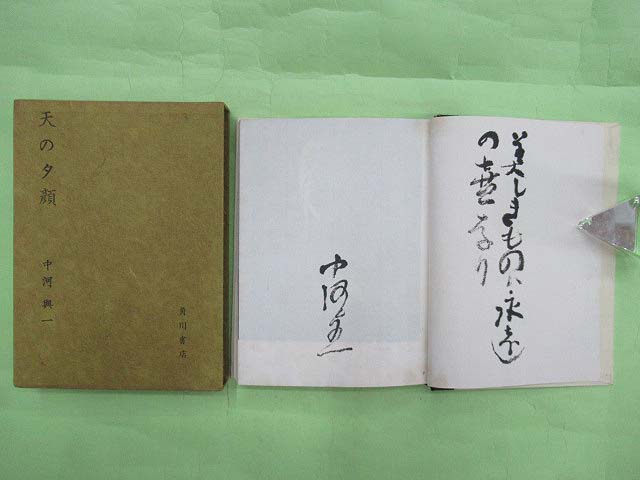 天の夕顔
中河與一
角川書店
美しきもの八永遠
の喜なり
中河与一